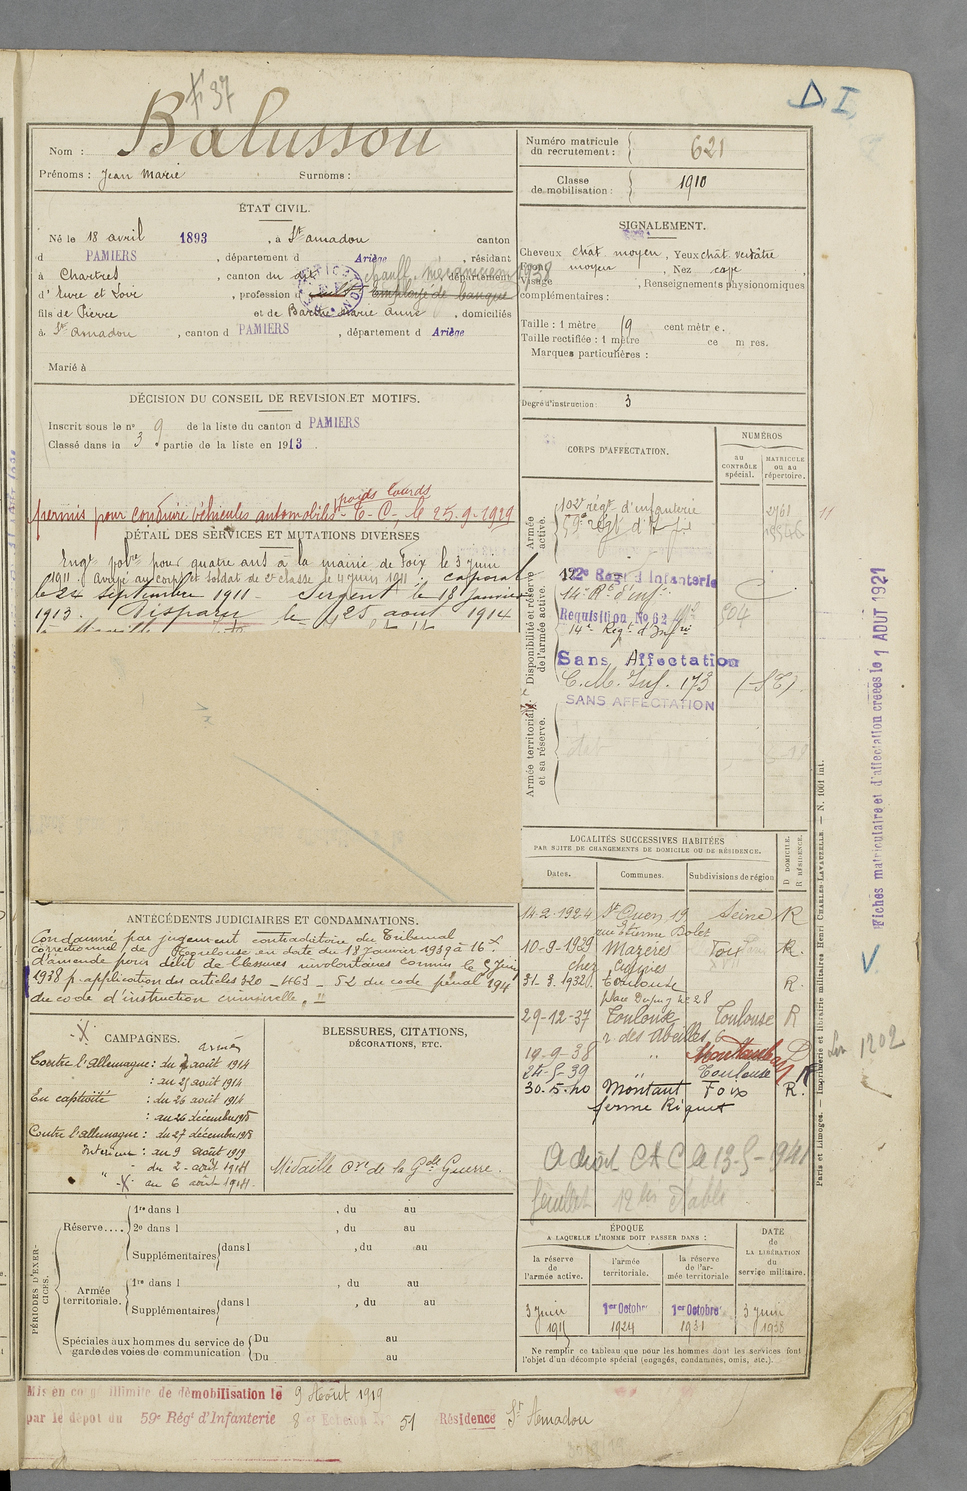 37
Δ I
Nom : Balussou
Prénoms : Jean Marie Surnoms :
Numéro matricule du recrutement : 621
Classe de mobilisation : 1910
ÉTAT CIVIL.
Né le 18 avril 1893, à St amadou canton
d PAMIERS, département d Ariège, résidant
à Chartres, canton du dit, département
d'Eure et Loir, profession d employé de banque
chauff. mécanicien 1938
fils de Pierre et de Barthe Marie Anne, domiciliés
à St amadou, canton d PAMIERS, département d Ariège
Marié à
SIGNALEMENT.
Cheveux chat moyen, Yeux chat verdâtre
Front moyen, Nez cave
Visage , Renseignements physionomiques
complémentaires :
Taille : 1 mètre 69 centimètre.
Taille rectifiée : 1 mètre ce m res.
Marques particulières :
Degré d'instruction : 3
DÉCISION DU CONSEIL DE REVISION ET MOTIFS.
Inscrit sous le n° 9 de la liste du canton d PAMIERS
Classé dans la 3 partie de la liste en 1913
poids lourds
permis pour conduire véhicules automobiles - T - C -, le 25-9-1929
DÉTAIL DES SERVICES ET MUTATIONS DIVERSES
Engt volre pour quatre ans à la mairie de Foix le 3 Juin
1911. Arrivé au corps et soldat de 2e classe le 4 Juin 1911. caporal
le 24 septembre 1911 - Sergent le 18 Janvier
1913. Disparu le 25 aout 1914
CORPS D'AFFECTATION.
NUMÉROS
AU CONTRÔLE spécial.
MATRICULE OU AU répertoire.
Armée active.
102e régt d'infanterie 2761
59e régt d'Inf.
Disponibilité et réserve de l'armée active.
122e Regt d Infanterie
14e Rt d'inf.
Requisition No 62
14e Regt d'Infrie
Sans Affectation
Armée territoriale et sa réserve.
C. M. Inf. 173
SANS AFFECTATION
Fiches matriculaire et d'affectation créées le 1 AOUT 1921
LOCALITÉS SUCCESSIVES HABITÉES
PAR SUITE DE CHANGEMENTS DE DOMICILE OU DE RÉSIDENCE.
Dates. Communes. Subdivisions de région
D DOMICILE.
R RÉSIDENCE.
14-2-1924 St Ouen 19 Seine R
rue Etienne Dolet
10-9-1929 Mazères Foix R.
chez
31-3-1932 Toulouse R.
place Dupuy no 28
29-12-37 Toulouse Toulouse R
r. des Abeilles 6
19-9-38 " Montauban D
24-5-39 " Toulouse R
30-5-40 Montant Foix R.
ferme Riquet
A droit CAC le 13-5-1941
ANTÉCÉDENTS JUDICIAIRES ET CONDAMNATIONS.
Condamné par jugement contradictoire du Tribunal
correctionnel de Toulouse en date du 18 Janvier 1939 à 16f
d'amende pour délit de blessures involontaires commis le 5 Juin
1938 p. application des articles 320 - 463 - 52 du code pénal 194
du code d'instruction criminelle. "
CAMPAGNES.
armée
Contre l'allemagne : du 2 août 1914
: au 25 août 1914
En captivité : du 26 août 1914
: au 26 décembre 1918
Contre l'allemagne : du 27 décembre 1918
Intérieur : au 9 août 1919
" - du 2 - août 1914
-X- au 6 août 1914.
BLESSURES, CITATIONS,
DÉCORATIONS, ETC.
Médaille Cve de la Gde Guerre.
PÉRIODES D'EXERCICES.
Réserve....
1re dans l , du au
2e dans l , du au
Supplémentaires dans l , du au
Armée territoriale.
1re dans l , du au
Supplémentaires dans l , du au
Spéciales aux hommes du service de garde des voies de communication
Du au
Du au
ÉPOQUE
A LAQUELLE L'HOMME DOIT PASSER DANS :
la réserve de l'armée active.
l'armée territoriale.
la réserve de l'armée territoriale
DATE de LA LIBÉRATION du service militaire.
3 Juin 1915
1er Octobr 1924
1er Octobre 1931
3 Juin 1938
Ne remplir ce tableau que pour les hommes dont les services font
l'objet d'un décompte spécial (engagés, condamnés, omis, etc.).
Paris et Limoges. — Imprimerie et librairie militaires Henri CHARLES-LAVAUZELLE. — N. 1001 int.
1202
Mis en congé illimité de démobilisation le 9 Août 1919
par le dépôt du 59e Régt d'Infanterie 8 e Echelon N° 51 Résidence St Amadou